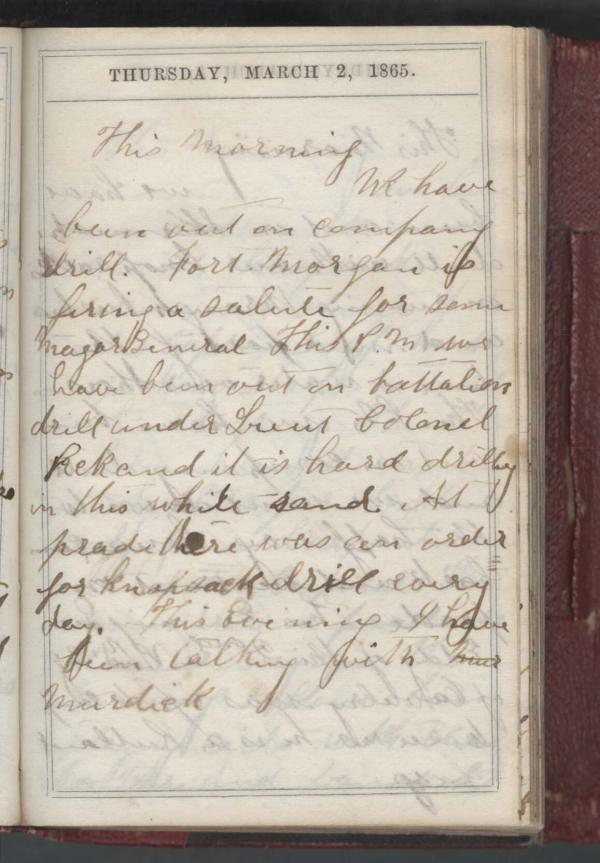 THURSDAY, MARCH 2, 1865.
This Morning
We have
been out on company
drill. Fort Morgan is
firing a salute for some
Magor General This P.M we
have been out on battalion
drill under Lieut Colonel
and it is hard drilling
in this white sand At
prade there was an order
for knapsack drill every
day. This Evening I have
been talking with
Murdick